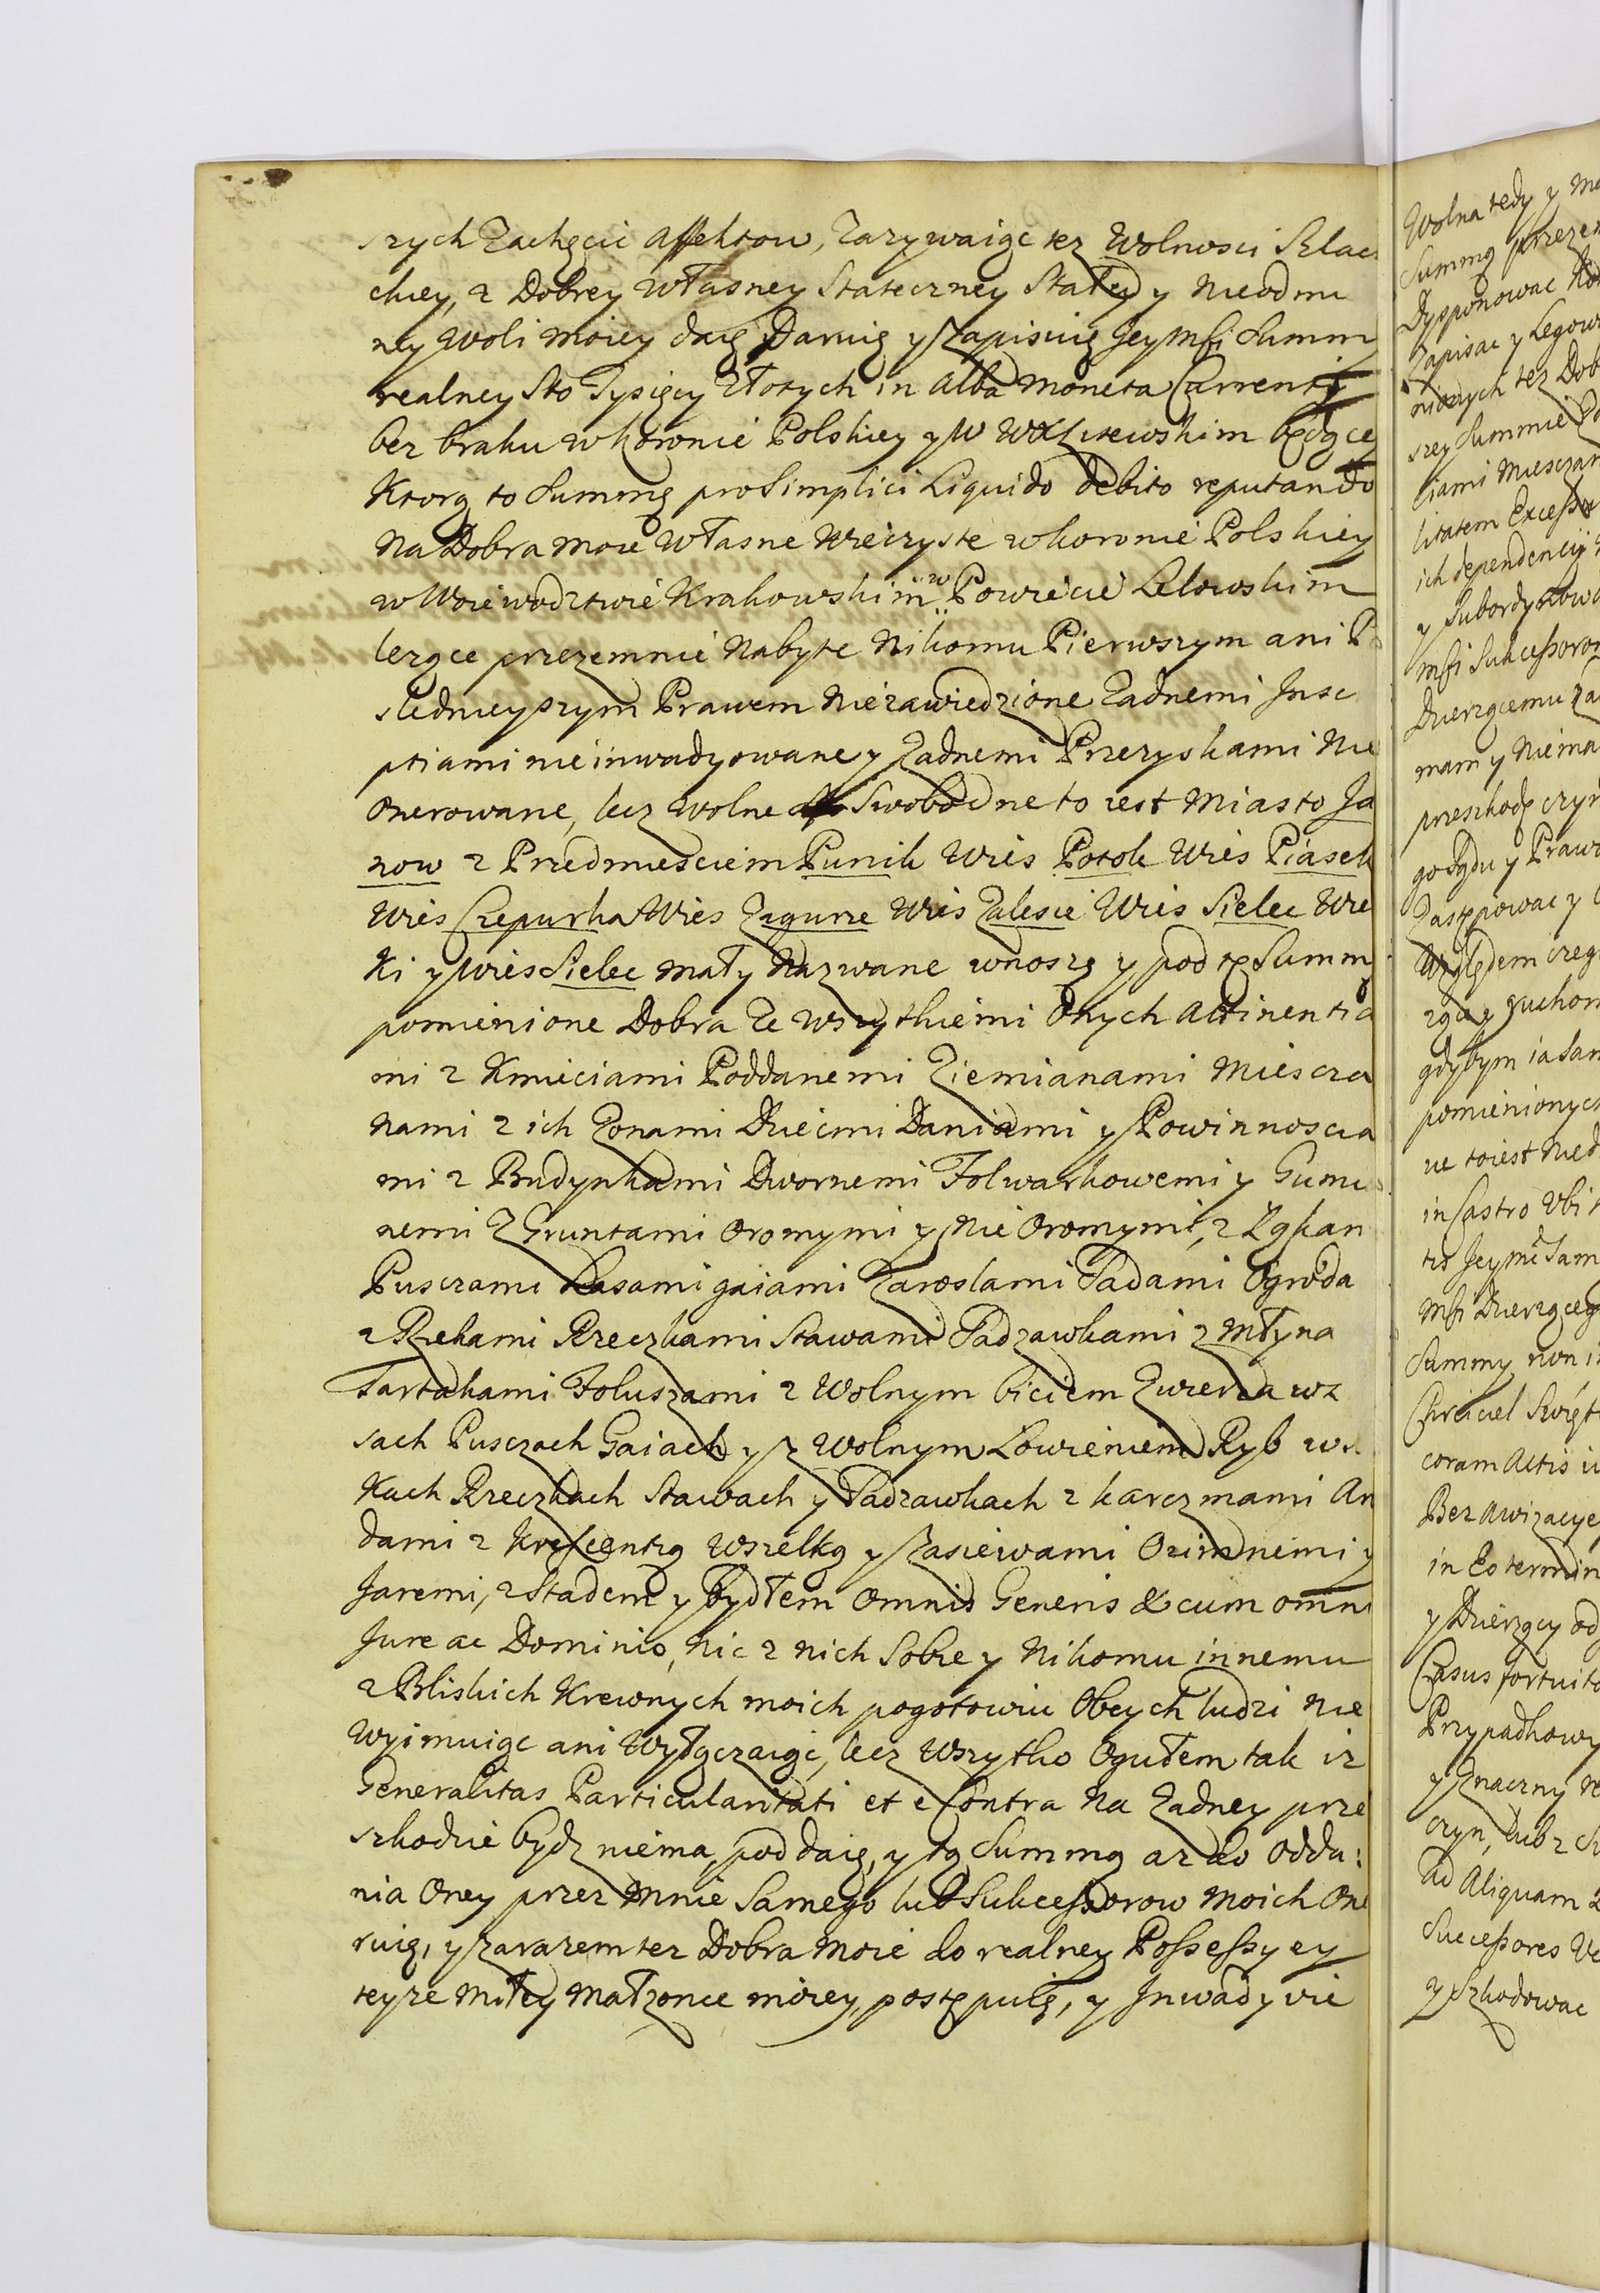 szych Zachęcic Affektow, Zazywaiąc tez Wolnosci Szlac
chiey, z Dobrey Własney Stateczney Stałey y Nieodmi
ney Woli Moiey daię Daruię y Zapisuię Jeymsci Summ
realney Sto Tysięcy Złotych in Alba Moneta Currenti
bez braku w koronie Polskiey y W WXLitewskim będącey
Ktorą to Summę pro Simplici Liquido debito reputando
Na Dobra Moie Własne Wieczyste w koronie Polskiey
w Woiewodztwie Krakowskim w Powiecie Lelowskim
lezące przezemnie Nabyte Nikomu Pierwszym ani P
slednieyszym Prawem Niezawiedzione Zadnemi Insc
ptiami nie inwadyowane y Zadnemi Przezyskami Nie
Onerowane, lecz Wolne Swobodne to iest Miasto Ja
now z Przedmiesciem Punik Wies Potok Wies Piasek
Wies Czepurka Wies Zagurze Wies Zalesie Wies Sielec Wie
Ki y Wies Sielec Mały Nazwane wnoszę y pod tę Summ
pomienione Dobra Ze Wszytkiemi Onych Attinentia
mi z Kmieciami Poddanemi Ziemianami Miescza
Nami z ich Zonami Dziećmi Daniami y Powinnoscia
mi z Budynkami Dwornemi Folwarkowemi y Gumie
nemi Z Gruntami Oromymi y Nie Oromymi, z Łąkan
Pusczami Lasami gaiami Zaroslami Sadami Ogroda
z Rzekami Rzeczkami Stawami Sadzawkami z Młyna
Tartakami Foluszami z Wolnym biciem Zwierza w L
sach Pusczach Gaiach y z Wolnym Łowieniem Ryb w
Kach Rzeczkach Stawach y Sadzawkach z karczmami Ar
dami z Krescentią Wszelką y Zasiewami Ozimnemi y
Jaremi, z Stadem y Bydłem Omnis Generis & cum omni
Jure ac Dominio, Nic z nich Sobie y Nikomu innemu
z Bliskich Krewnych moich pogotowiu Obcych ludzi Nie
Wyimuiąc ani Wyłączaiąc, lecz Wszytko Ogułem tak iz
Generalitas Particularitati et e Contra Na Zadney prze
szkodzie bydz niema, poddaię, y tą Summą az do Odda:
nia Oney przez Mnie Samego lub Sukcessorow Moich One
ruię, y Zarazem tez Dobra Moie do realney Possessyey
teyze Miłey Małzonce moiey, postępuię, y Inwadyuie
Wolna tedy y Mo
Summę przezem
Dysponowac Kom
Zapisac y Legow
nionych tez Dob
szey Summie Po
ciami Miesczan
litatem Excess
ich dependencij
y Subordynowa
msci Sukcessorom
Dzierzącemu Za
mam y Niema
przeszkodę czyn
go Sądu y Prawa
Zastępowac y
Względem czeg
rzące y ruchom
gdybym ia Sam
pomienionych
ne toiest Nied
in Castro Ubi
tis Jeymci Sam
Msci Dzierzące
Summy, non i
Chrciciel Święt
coram Actis i
Bez Awizacye
in Eo termin
y Dzierzący od
Casus fortuito
Przypadkowy
y Znaczny re
czyn, lub z
Ad Aliquam
Successores Ve
y Szkodowac